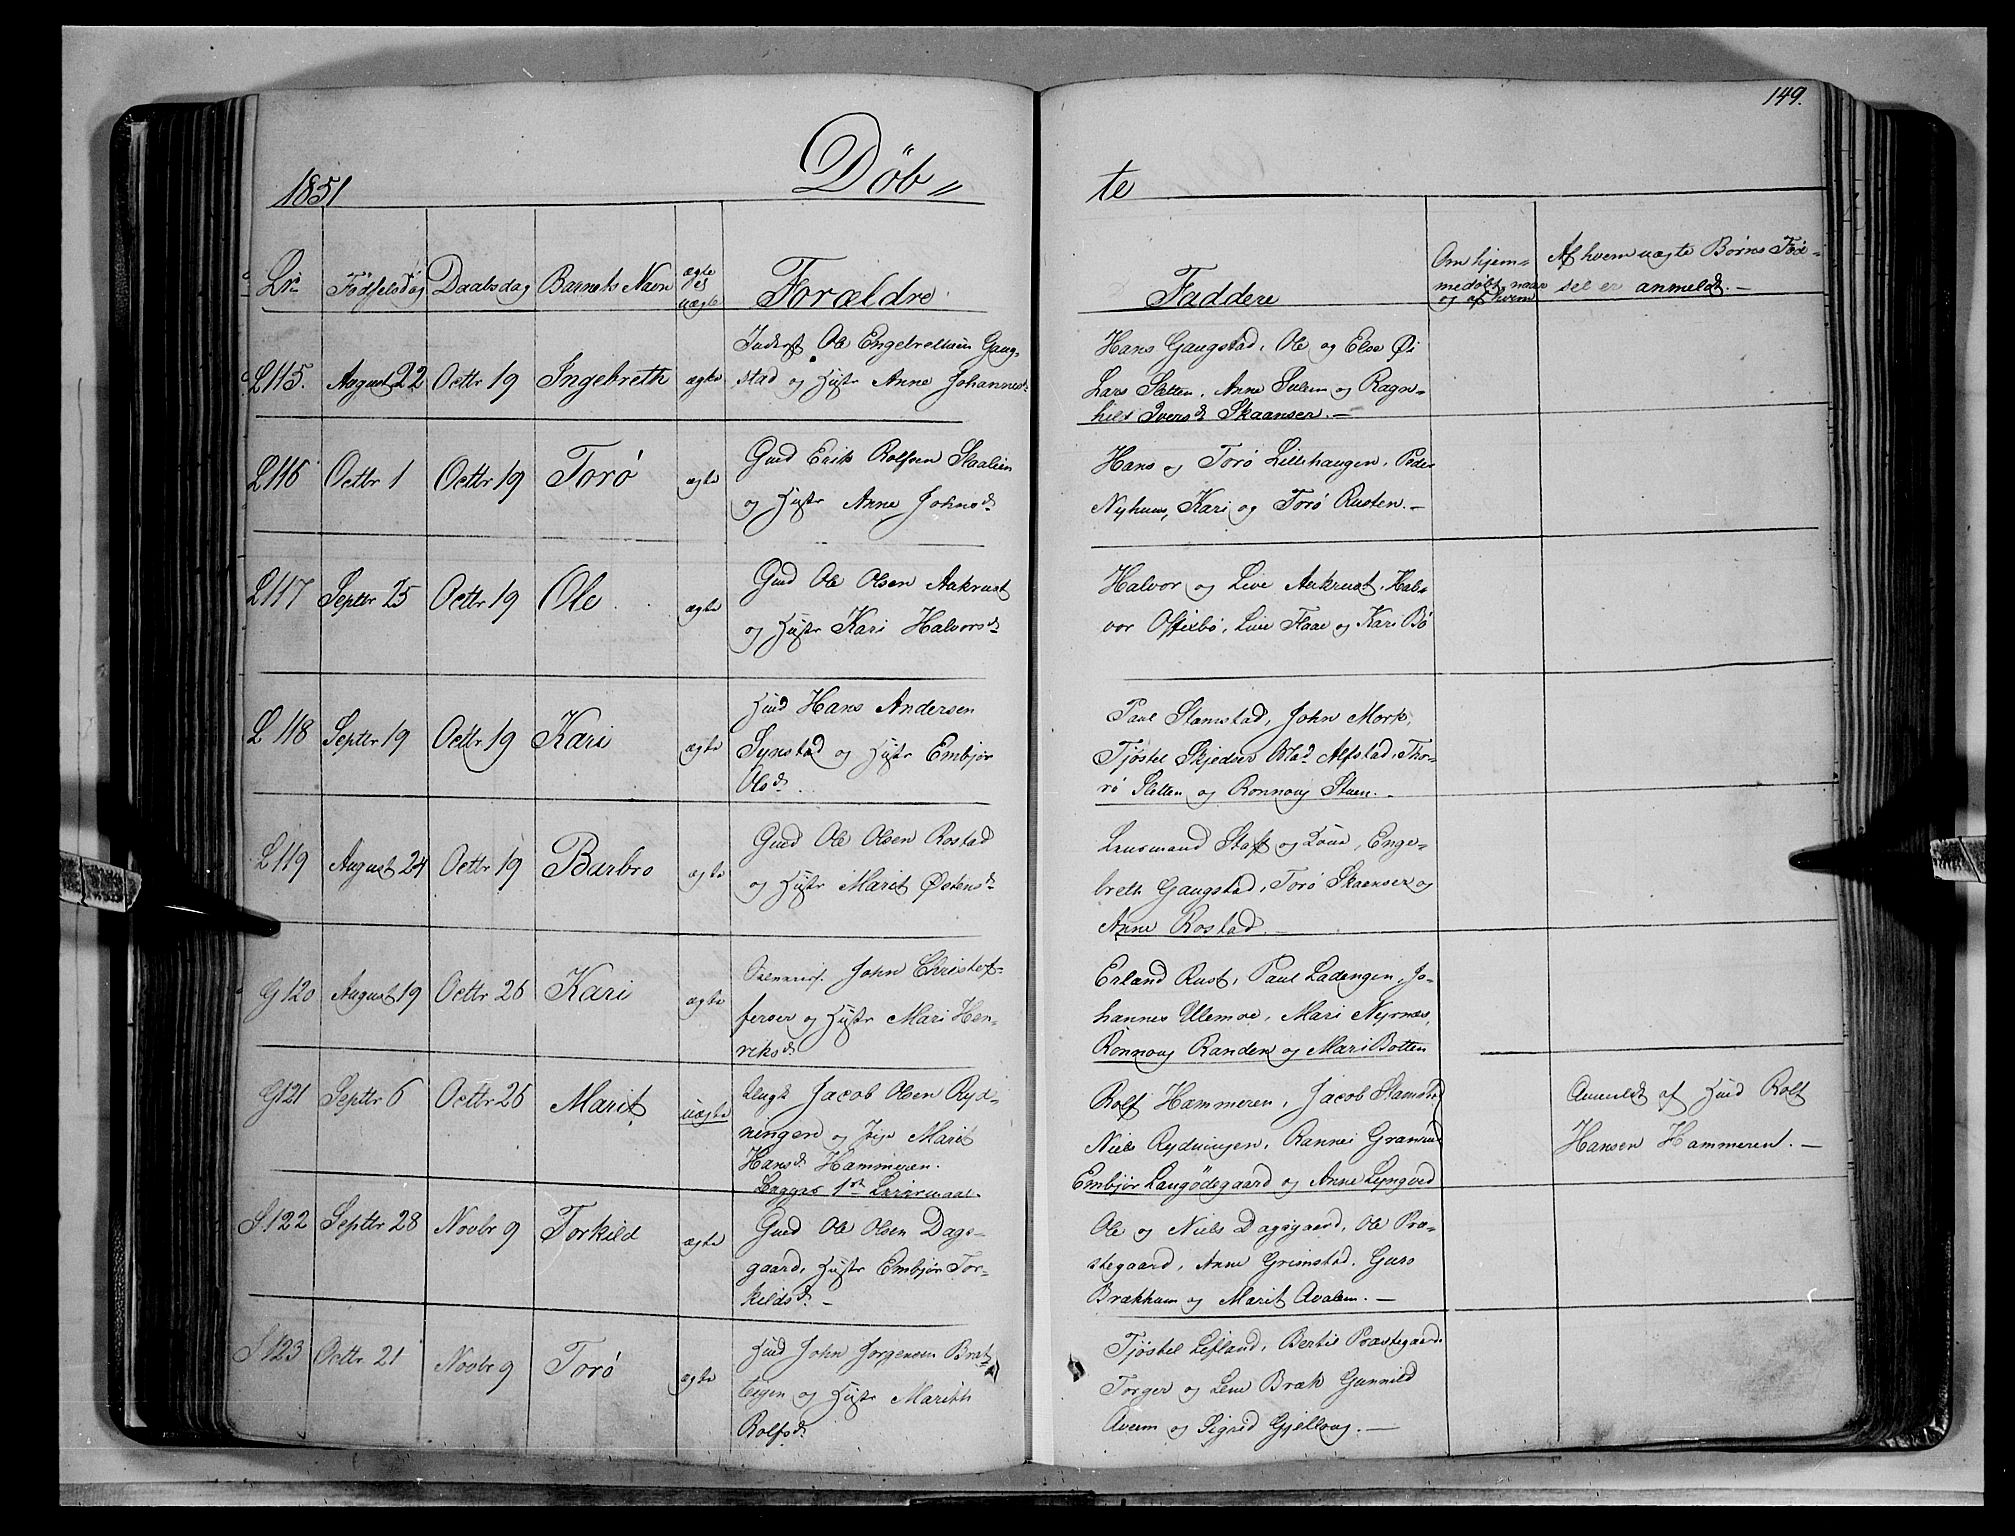 149.
1851
Döb=
te
Lr.
Födselsdag
Daabsdag
Barnets Navn
ægte
uægte
Forældre
Faddere
Om hjem=
medöbt, naar
og af hvem
Af hvem uægte Börns Föd=
sel er anmeldt.—
L115.
August 22
Octbr 19
Ingebreth
ægte
Inderst Ole Engebretsen Gaug=
stad og Hustr Anne Johannesd.
Hans Gaugstad, Ole og Else Öi
Lars Sletten, Anne Sulem og Ragn=
hild Iversd. Skaanser.—
L116
Octbr 1
Octbr 19
Torö
ægte
Gmd Erik Rolfsen Staalien
og Hustr Anne Johnsd.
Hans og Torö Lillehaugen, Peder
Nyhuus, Kari og Torö Rusten.—
L117
Septbr 25
Octbr 19
Ole
ægte
Gmd Ole Olsen Aakrust
og Hustr Kari Halvorsd.
Halvor og Live Aakrust, Hal=
vor Offixbö, Live Flaae og Kari Bö
L118
Septbr 19
Octbr 19
Kari
ægte
Hmd Hans Andersen
Synstad og Hustr Embjör
Olsd.
Paul Stamstad, John Mork,
Tjöstel Skjedser Mad. Alfstad, Tho=
rö Sletten og Ronnoug Stuen.—
L119
August 24
Octbr 19
Barbro
ægte
Gmd Ole Olsen Rostad
og Hustr Marit Östensd.
Lensmand Staff og Kone, Enge=
breth Gaugstad, Torö Skaanser og
Anne Rostad.—
G120
August 19
Octbr 26
Kari
ægte
John Christof=
fersen og Hustr Mari Hen=
riksd.
Erland Rust, Paul Ladengen, Jo=
hannes Ulemoe, Mari Nyrnæs,
Ronnoug Randen og Mari Botten
G121
Septbr 6
Octbr 26
Marit
uægte
Ungk Jacob Olsen Ryd=
ningen og Pige Marit
Hansd. Hammeren.
Begges 1ste Leiermaal.
Rolf Hammeren, Jacob Stamstad
Niels Rydningen, Rannei Gramrud
Embjör Laugödegaard og Anne Lyngved
Anmeldt af Hmd Rolf
Hansen Hammeren.—
S122
Septbr 28
Novbr 9
Torkild
ægte
Gmd Ole Olsen Dags=
gaard, Hustr Embjör Tor=
kildsd.—
Ole og Niels Dagsgaard, Ole Præ=
stegaard, Anne Grimstad, Guro
Brækhum og Marit Avalem.—
S123
Octbr 21
Novbr 9
Torö
ægte
Hmd John Jörgensen Brat=
teigen og Hustr Marith
Rolfsd.
Tjöstel Lefland, Bertil Præstegaard
Torger og Lene Bræk Gunnild
Aveem og Sigrid Gjelloug.—